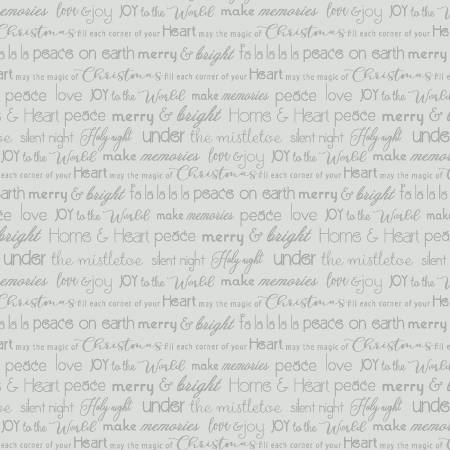 memories love & joy JOY to the World make memories love & joy JOY to the
Christmas fill each corner of your Heart may the magic of Christmas fill each
la la la peace on earth merry & bright fa la la la la peace on earth
Heart may the magic of Christmas fill each corner of your Heart may the magic of
peace love JOY to the World make memories peace love JOY
& Heart peace merry & bright Home & Heart peace merry &
silent night Holy night under the mistletoe silent night Holy night under
JOY to the World make memories love & joy JOY to the World make
each corner of your Heart may the magic of Christmas fill each corner of your Heart
earth merry & bright fa la la la la peace on earth merry & bright fa la la
peace love JOY to the World make memories peace love JOY to the
bright Home & Heart peace merry & bright Home & Heart peace
under the mistletoe silent night Holy night under the mistletoe silent
memories love & joy JOY to the World make memories love & joy JOY to the
Christmas fill each corner of your Heart may the magic of Christmas fill each
la la la peace on earth merry & bright fa la la la la peace on earth
Heart may the magic of Christmas fill each corner of your Heart may the magic of
peace love JOY to the World make memories peace love JOY
& Heart peace merry & bright Home & Heart peace merry &
silent night Holy night under the mistletoe silent night Holy night under
JOY to the World make memories love & joy JOY to the World make
each corner of your Heart may the magic of Christmas fill each corner of your Heart